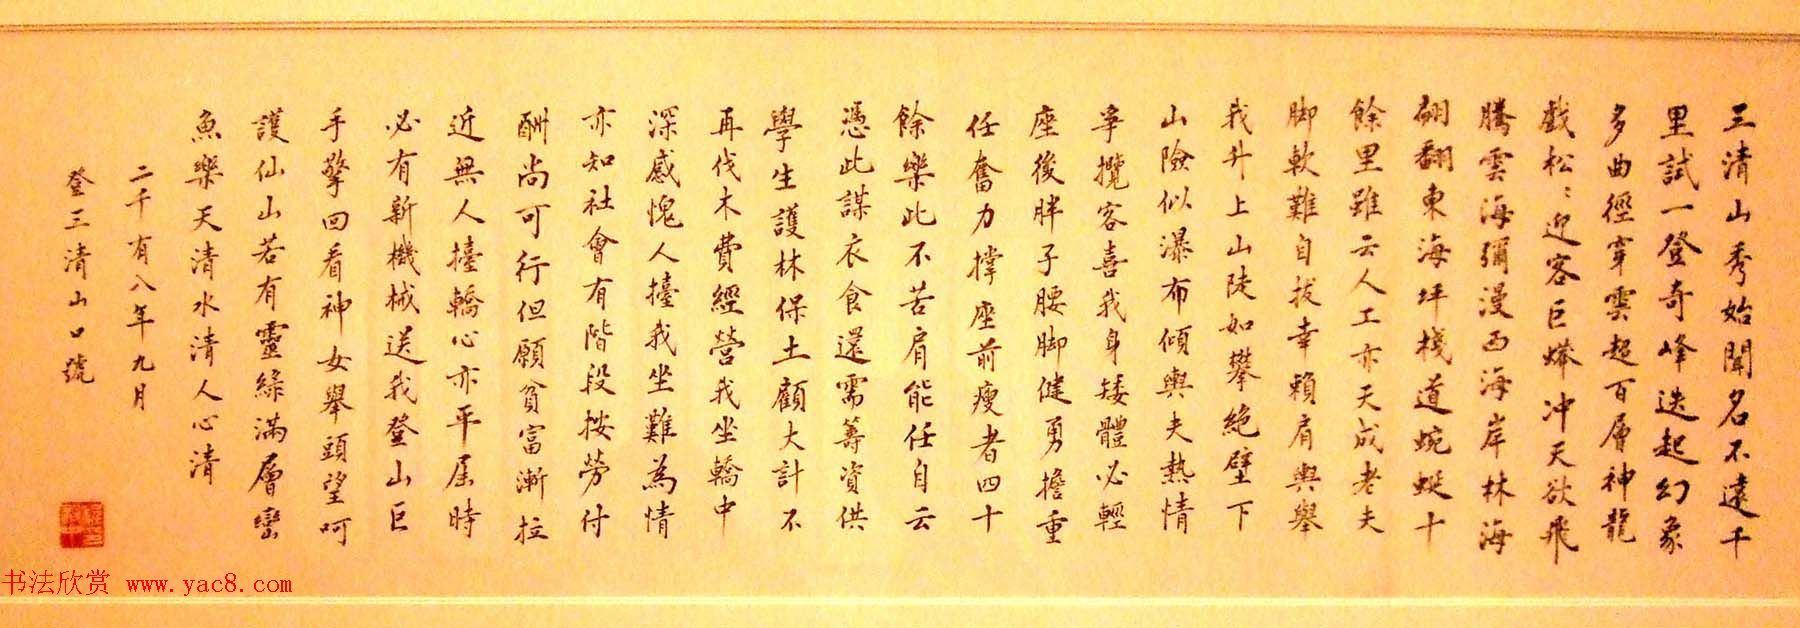 三清山秀始聞名不遠千
里試一登奇峰迭起幻象
多曲徑穿雲超百層神龍
戲松〻迎客巨蟒冲天欲飛
騰雲海彌漫西海岸林海
翩翻東海坪棧道蜿蜒十
餘里雖云人工亦天成老夫
脚軟難自拔幸賴肩輿舉
我升上山陡如攀絶壁下
山險似瀑布傾輿夫熱情
爭攬客喜我身矮體必輕
座後胖子腰脚健勇擔重
任奮力撑座前瘦者四十
餘樂此不苦肩能任自云
憑此謀衣食還需籌資供
學生護林保土顧大計不
再伐木費經營我坐轎中
深感愧人擡我坐難為情
亦知社會有階段按勞付
酬尚可行但願貧富漸拉
近無人擡轎心亦平屆時
必有新機械送我登山巨
手擎回看神女舉頭望呵
護仙山若有靈綠滿層巒
魚樂天清水清人心清
二千有八年九月
登三清山口號
书法欣赏 www.yac8.com